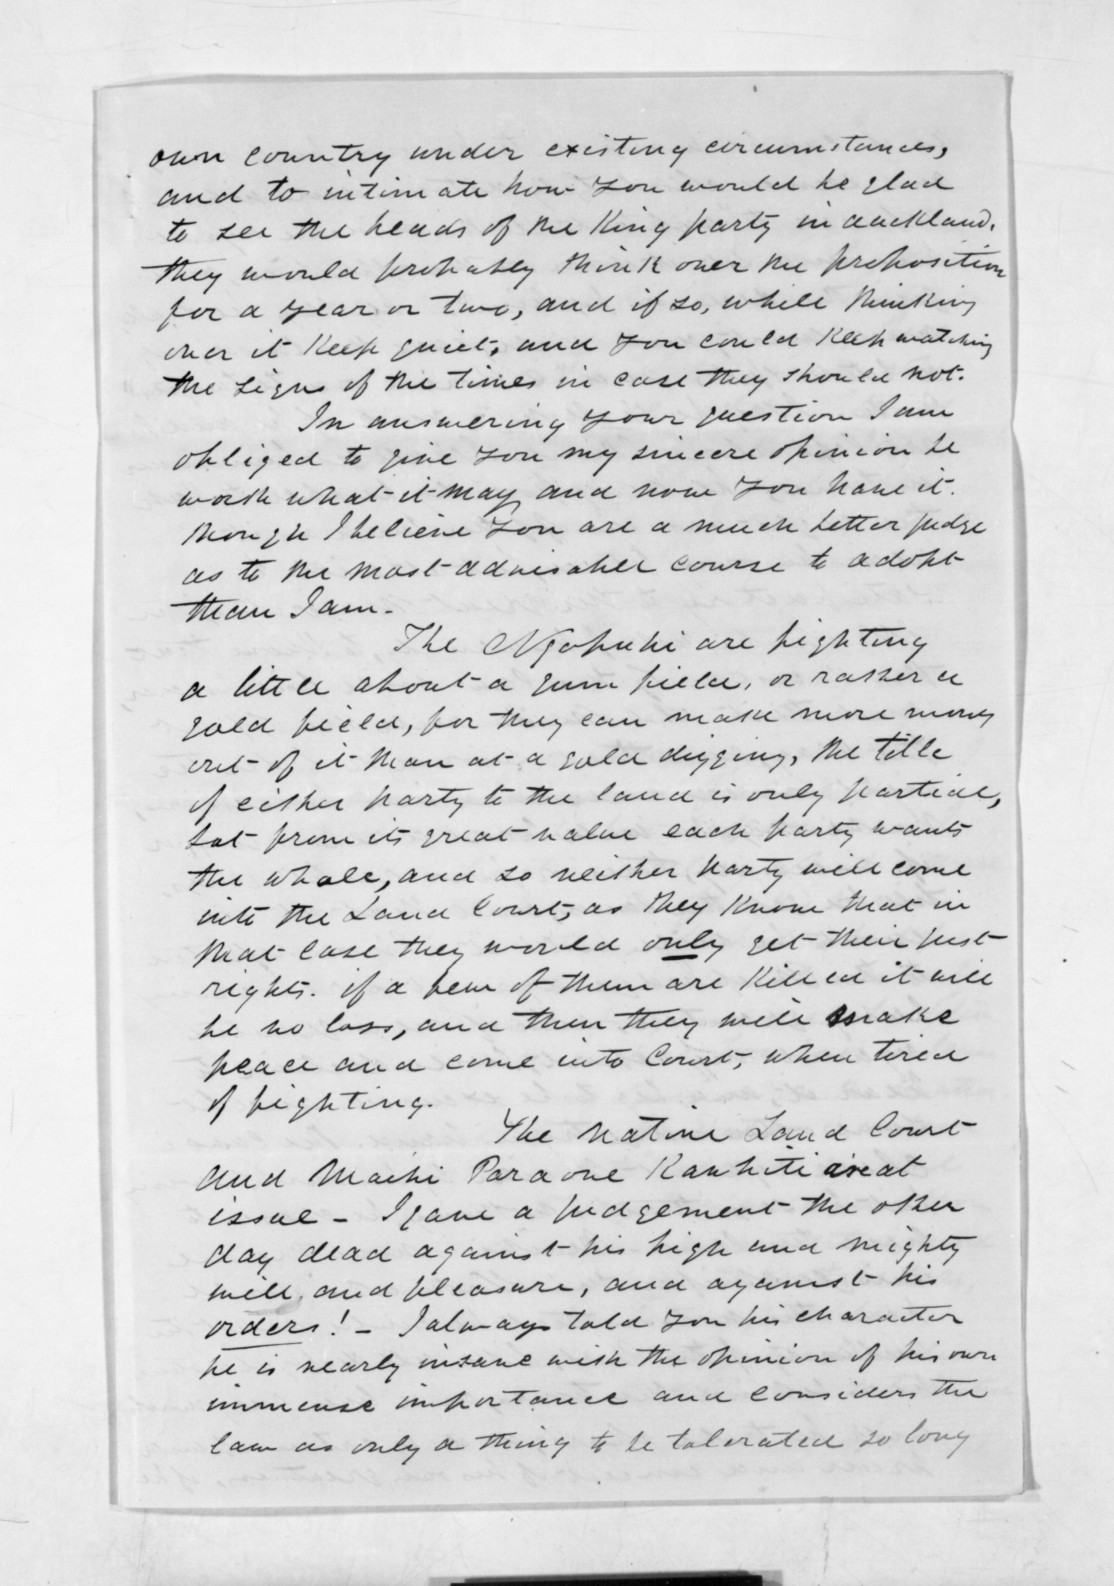 own country under existing circumstances,
and to intimate how you would be glad
to see the heads of the King party in auckland.
they would probably think over the proposition
for a year or two, and if so, while thinking
over it keep quiet, and you could keep watching
the signs of the times in case they should not.
In answering your question I am
obliged to give you my sincere opinion be
worth what it may, and now you have it.
though I believe you are a much better judge
as to the most advisable course to adopt
than I am -
The Ngapuhi are fighting
a little about a gum field, or rather a
gold field, for they can make more money
out of it than at a gold digging, the title
of either party to the land is only partial,
but from its great value each party wants
the whole, and so neither party will come
into the Land Court, as they know that in
that case they would only get their just
rights. if a few of them are killed it will
be no loss, and then they will make
peace and come into Court, when tired
of fighting.
The native Land Court
and Maihi Paraone Kawhiti are at
issue - I gave a judgement the other
day dead against his high and mighty
will, and pleasure, and against his
orders! - I always told you his character
he is nearly insane with the opinion of his own
immense importance and considers the
law as only a thing to be tolerated so long